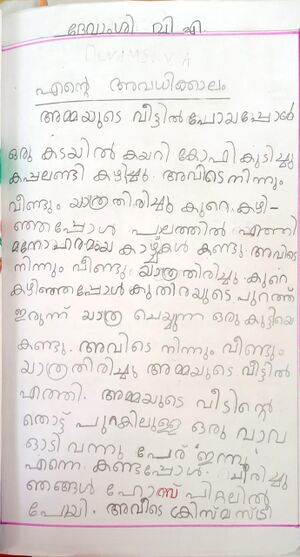 ദേവാംശി വി.എ.
DEVAMSI V.A
എന്റെ അവധിക്കാലം
അമ്മയുടെ വീട്ടിൽ പോയപ്പോൾ
ഒരു കടയിൽ കയറി കോഫി കുടിച്ചു
കപ്പലണ്ടി കഴിച്ചു. അവിടെ നിന്നും
വീണ്ടും യാത്രതിരിച്ചു കുറെ കഴി-
ഞ്ഞപ്പോൾ പാലത്തിൽ എത്തി
മനോഹരമായ കാഴ്ചകൾ കണ്ടു. അവിടെ
നിന്നും വീണ്ടും യാത്രതിരിച്ചു. കുറെ
കഴിഞ്ഞപ്പോൾ കുതിരയുടെ പുറത്ത്
ഇരുന്ന് യാത്ര ചെയ്യുന്ന ഒരു കുട്ടിയെ
കണ്ടു. അവിടെ നിന്നും വീണ്ടും
യാത്രതിരിച്ചു അമ്മയുടെ വീട്ടിൽ
എത്തി. അമ്മയുടെ വീടിന്റെ
തൊട്ട് പുറകിലുള്ള ഒരു വാവ
ഓടി വന്നു പേര് ഇന്നു
എന്നെ കണ്ടപ്പോൾ ചിരിച്ചു
ഞങ്ങൾ ഹോസ്പിറ്റലിൽ
പോയി. അവിടെ ക്രിസ്മസ്ട്രീ